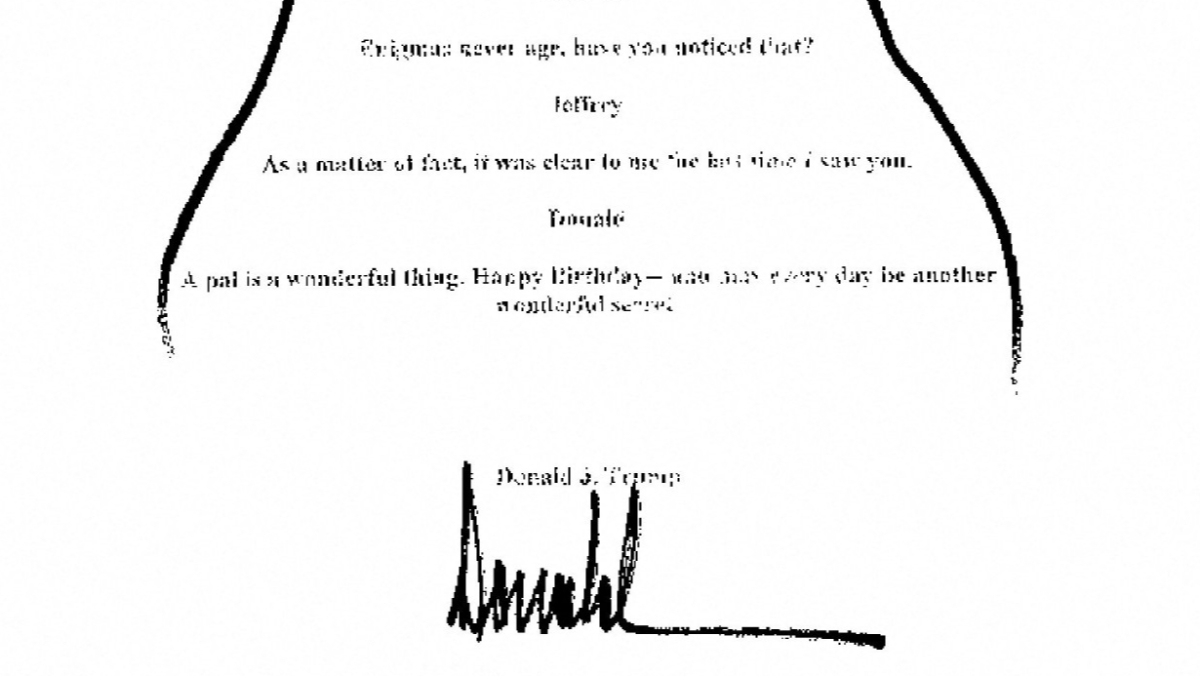 Enigmas never age, have you noticed that?
Jeffrey
As a matter of fact, it was clear to me the last time I saw you.
Donald
A pal is a wonderful thing. Happy Birthday — and may every day be another
wonderful secret
Donald J. Trump
Donald